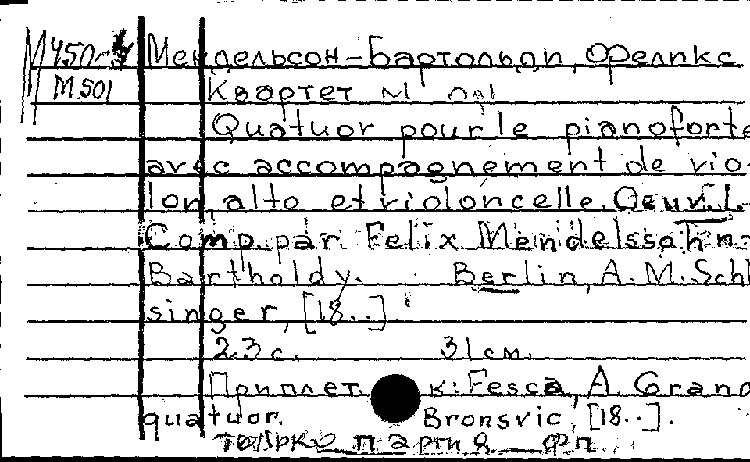 М450-
Мендельсон-Бартольди, Феликс
М501
Квартет
Quatuor pour le pianoforte
avec accompagnement de vio-
lon, alto et violoncelle. Oeuv. 1.
Comp. par Felix Mendelssohn-
Bartholdy. Berlin, A. M. Schl
singer, [18..]
23 с. 31 см.
Приплет. к: Fesca, A. Grand
quatuor. Bronsvic, [18..].
только партия фп.